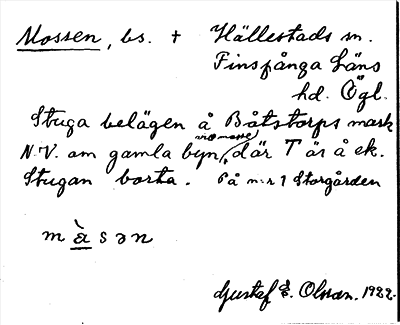 Mossen, bs. + Hällestads sn.
Finspånga Läns
hd. Ögl.
Stuga belägen å Båtstorps mark
vid mosse
N.V. om gamla byn, där T är å ek.
Stugan borta. På nr 1 Storgården
m à s ə n
Gustaf E. Olsson. 1922.